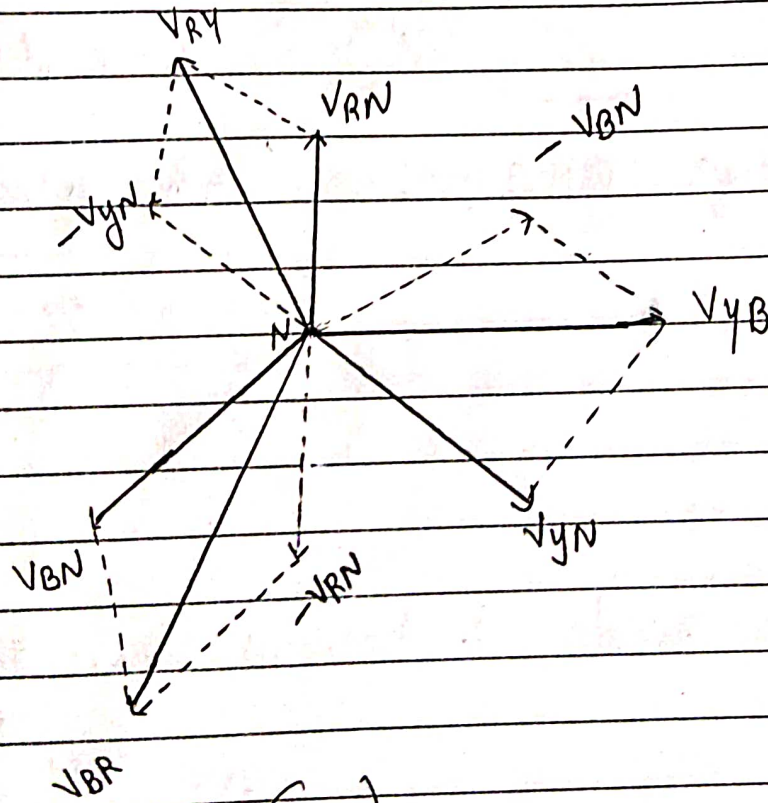 VRY
VRN
-VBN
-VyN
N
VyB
VyN
VBN
-VRN
VBR